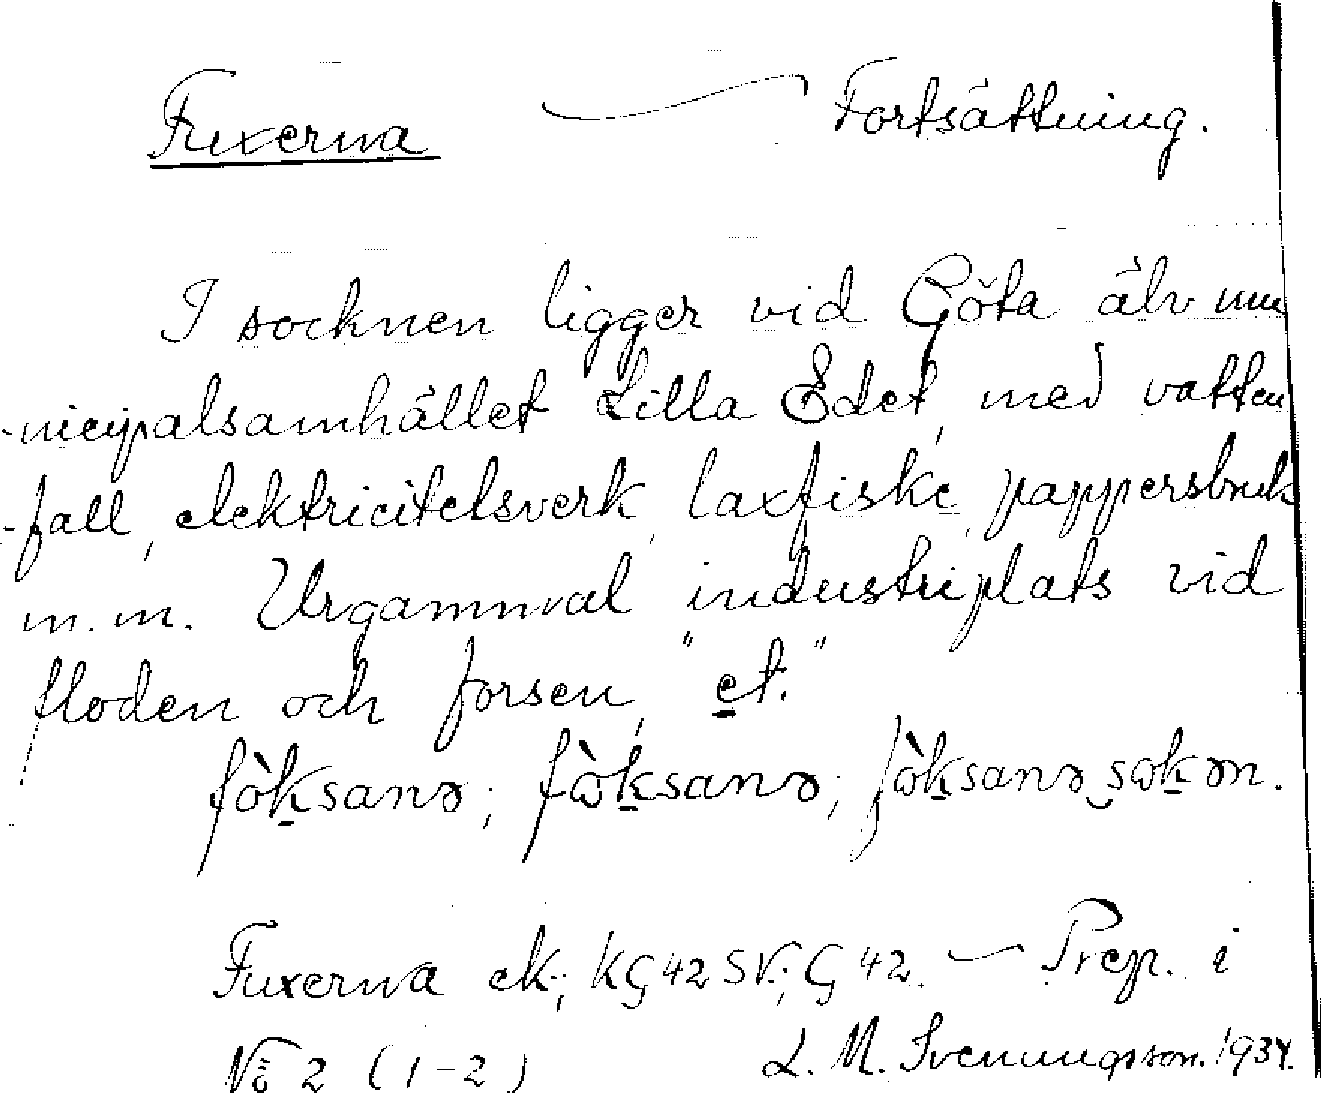 Fuxerna — Fortsättning.
I socknen ligger vid Göta älv mu
-nicipalsamhället Lilla Edet, med vatten
-fall, elektricitetsverk, laxfiske, pappersbruk
m.m. Urgammal industriplats vid
floden och forsen, "et."
fòksanə; fὼksanə; fòksanə sωkən.
Fuxerna ek; KG 42 SV; G 42. — Prep. i
No 2 (1-2) L. M. Svenungsson. 1934.